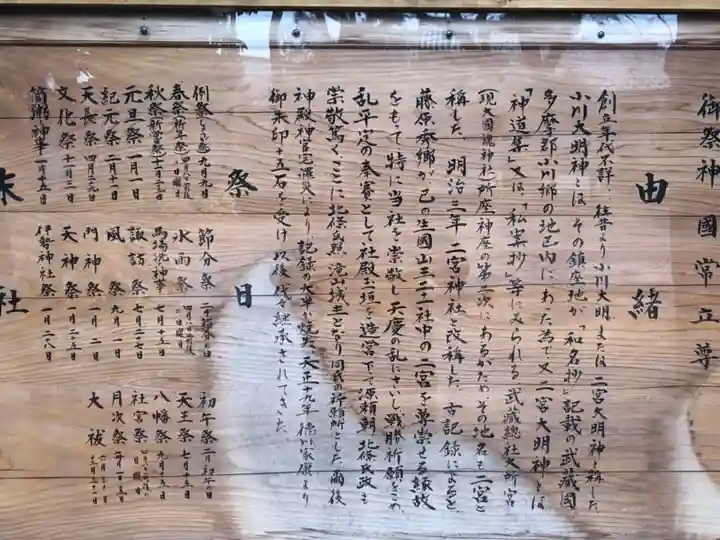 御祭神 國常立尊
由緒
創立年代不詳 往昔より小川大明または二宮大明神と称した。
小川大明神とは、その鎮座地が「和名抄」記載の武蔵國
多摩郡小川郷の地区内にあった為で又二宮大明神とは
「神道集」又は、「私案抄」等にみられる武蔵総社六所宮
(現大國魂神社)所座神座の第二次にあるかためその地名も二宮と
称した。明治三年 二宮神社と改称した。古記録によると
藤原秀郷が己の生國山王二十一社中の二宮を尊崇せる縁故
をもって特に当社を崇敬し天慶の乱にさいし戦勝祈願をこめ
乱平定の奉賽として社殿玉垣を造営 下て源頼朝、北條氏政も
崇敬篤く、ここに北條氏照滝山城主となり同家の祈願所とした爾後
神殿神官宅漣災により記録の大半が焼失 天正十九年徳川家康より
御朱印十五石を受け以後代々継承されてきた。
祭日
例祭 九月九日
春祭
秋祭
元旦祭 一月一日
紀元祭 二月十一日
天長祭 四月二十九日
文化祭 十一月三日
筒粥神事 一月十五日
節分祭
水雨祭
馬場洗神事 七月十五日
諏訪祭 七月二十七日
風祭 九月一日
門神祭 一月二日
天神祭 一月二十五日
伊勢神社祭 一月二八日
初午祭 二月初午の日
天王祭 七月十五日
八幡祭 九月十五日
社宮祭
月次祭
大祓
末社